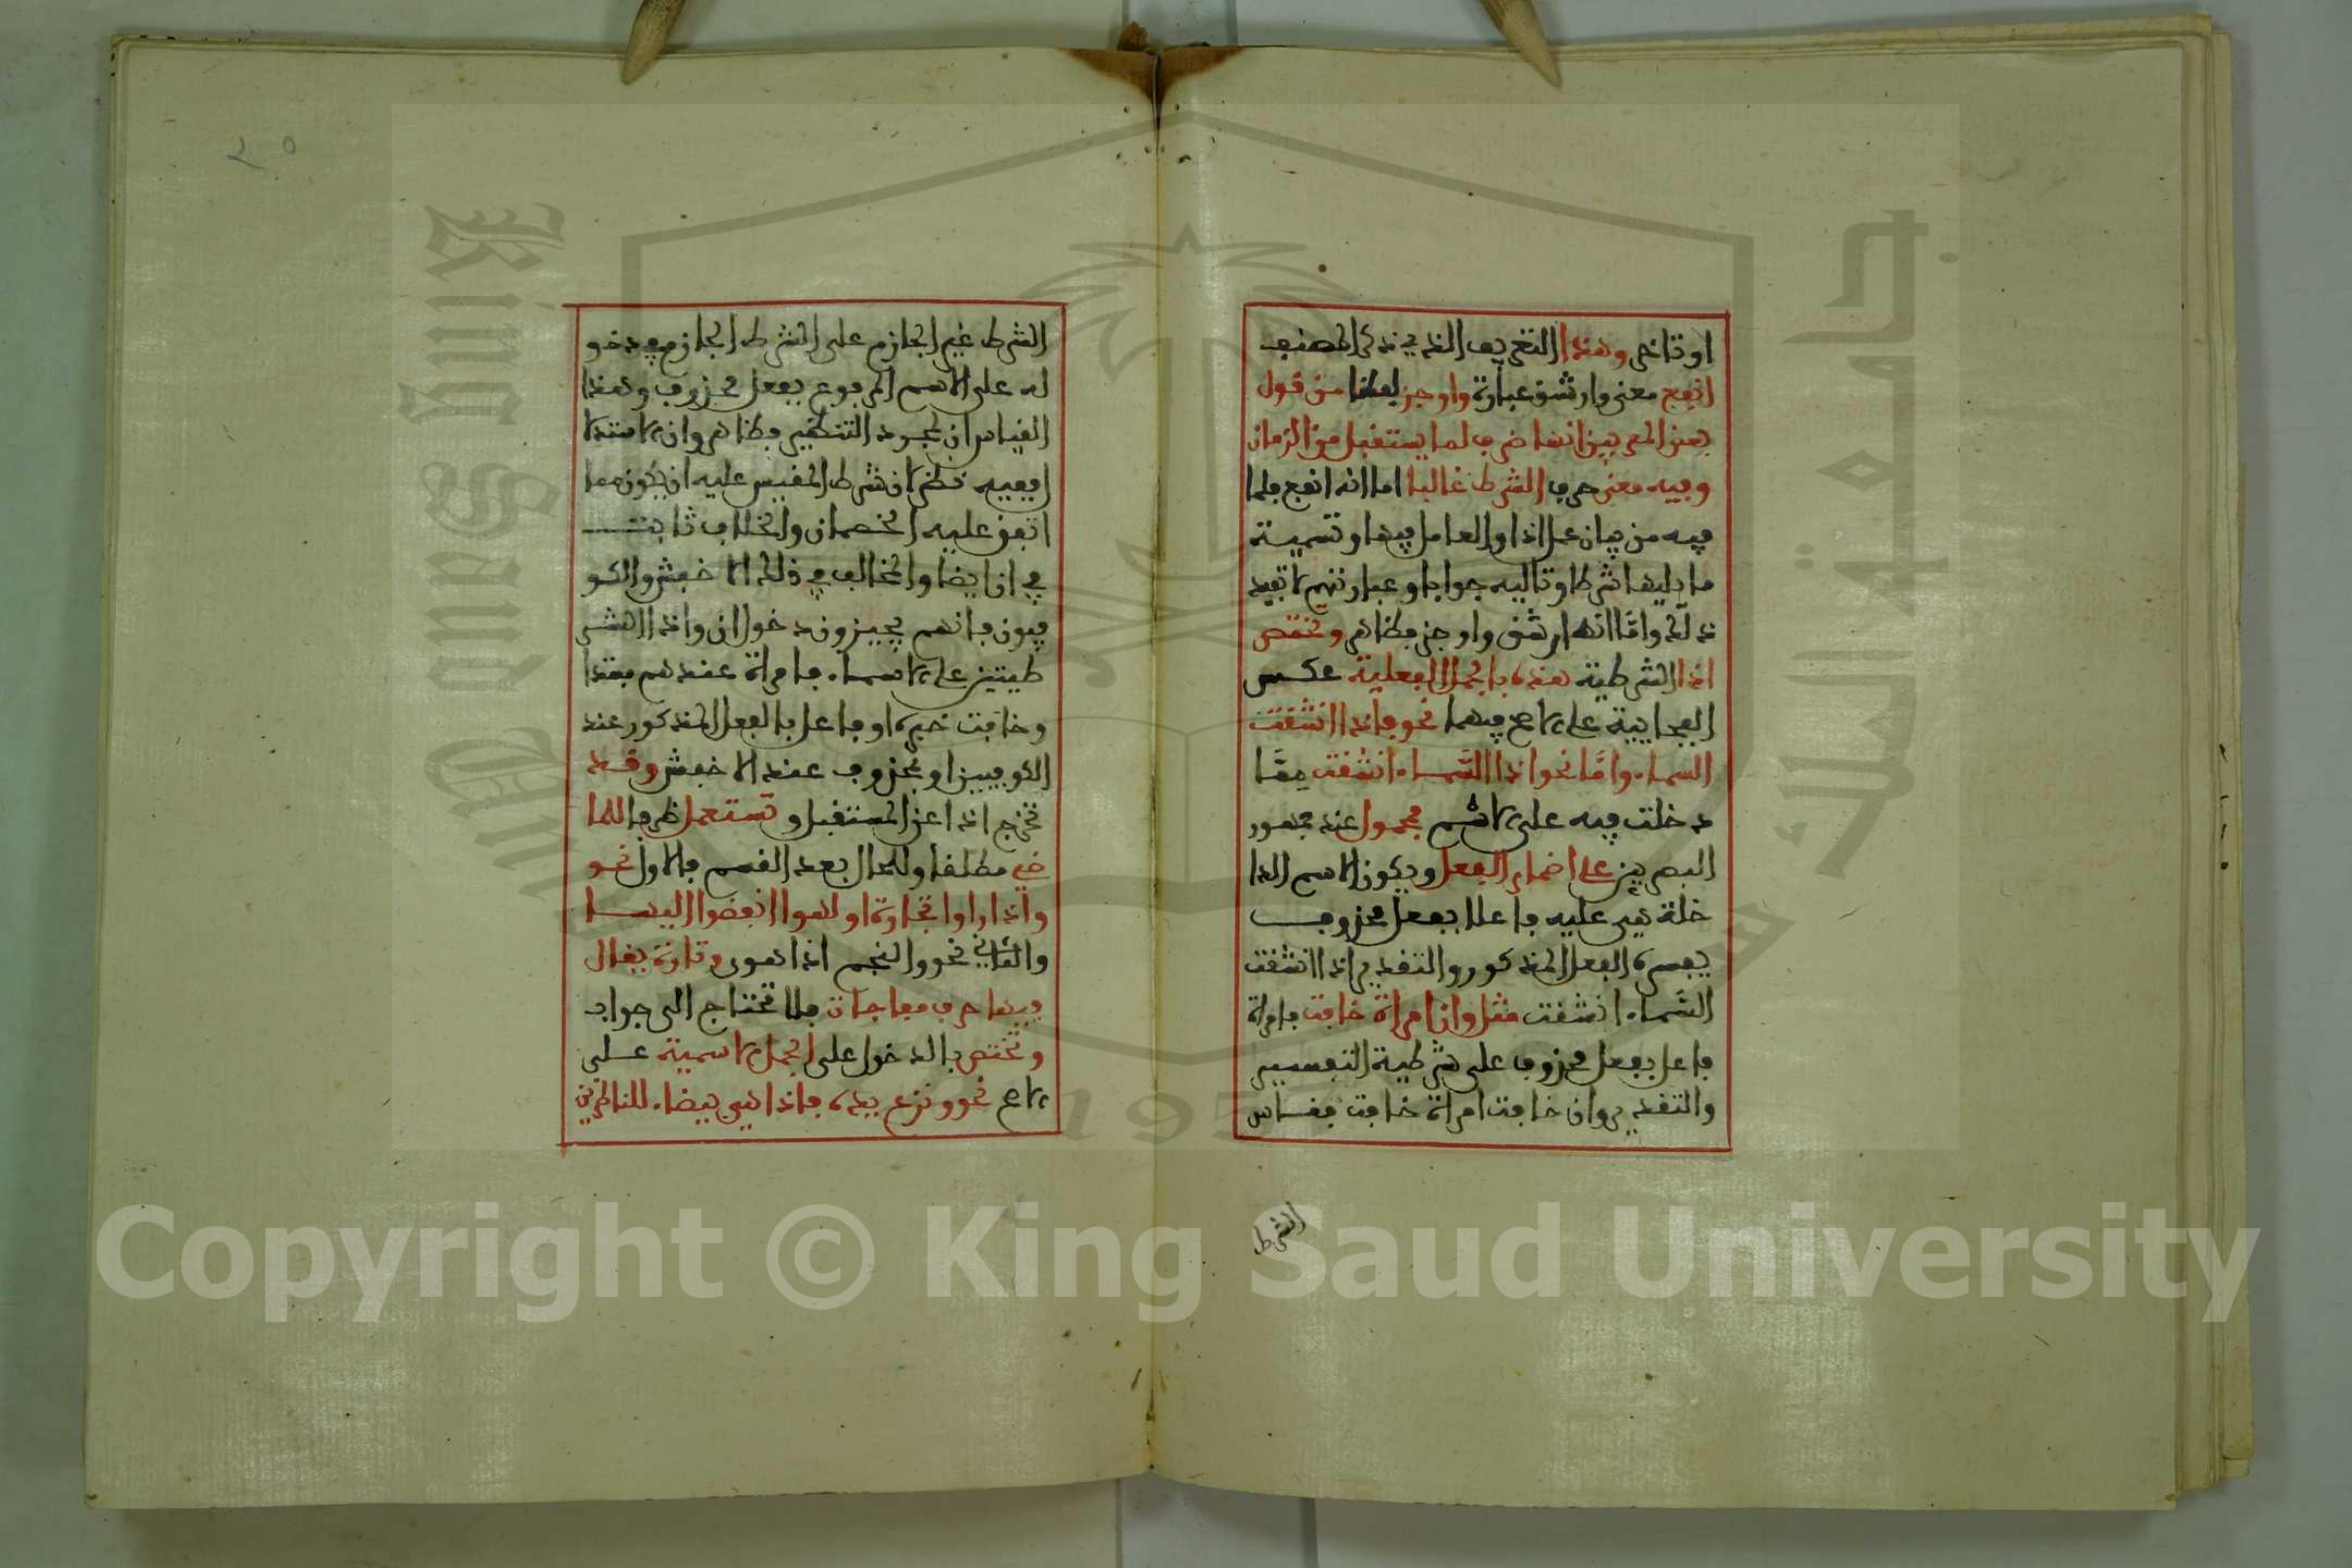 او تاخر وهذا التعريف الذي ذكر المصنف
انفع معنى وارشق عبارة واوجز لفظا من قول
بعض المعربين انها ظرف لما يستقبل من الزمان
وفيه معنى حرف الشرط غالبا اما انه انفع فلما
فيه من بيان عمل اذا والعامل فيها وتسمية
ما يليها شرطا وتاليه جوابا وعبارتهم لا تفيد
ذلك واما انه ارشق واوجز فظاهر وتختص
اذا الشرطية هذه بالجمل الفعلية عكس
الفجايية على الاصح فيهما نحو فاذا انشقت
السماء واما نحو اذا السماء انشقت مما
دخلت فيه على الاسم فمحمول عند جمهور
البصريين على اضمار الفعل ويكون الاسم الدا
خلة هي عليه فاعلا بفعل محذوف
يفسره الفعل المذكور والتقدير اذا انشقت
السماء انشقت مثل وان امراة خافت فامراة
فاعل بفعل محذوف على شرطية التفسير
والتقدير وان خافت امراة خافت فقاس
الشرط
٢٠
الشرط غير الجازم على الشرط الجازم في دخو
له على الاسم المرفوع بفعل محذوف وهذا
القياس ان لمجرد التنظير فظاهر وان
ففيه نظر لان شرط المقيس عليه ان يكون مما
اتفق عليه الخصمان والخلاف ثابت
في ان ايضا والمخالف في ذلك الاخفش والكو
فيون فانهم يجيزون دخول ان واذا الشر
طيتين على الاسماء فامراة عندهم مبتدا
وخافت خبره او فاعل بالفعل المذكور عند
الكوفيين او بمحذوف عند الاخفش وقد
تخرج اذا عن المستقبل وتستعمل ظرفا للما
ضي مطلقا وللحال بعد القسم فالاول نحو
واذا راوا تجارة او لهوا انفضوا اليها
والثاني نحو والنجم اذا هوى وتارة يقال
فيها حرف مفاجاة فلا تحتاج الى جواب
وتختص بالدخول على الجمل الاسمية على
الاصح نحو ونزع يده فاذا هي بيضاء للناظرين
Copyright © King Saud University